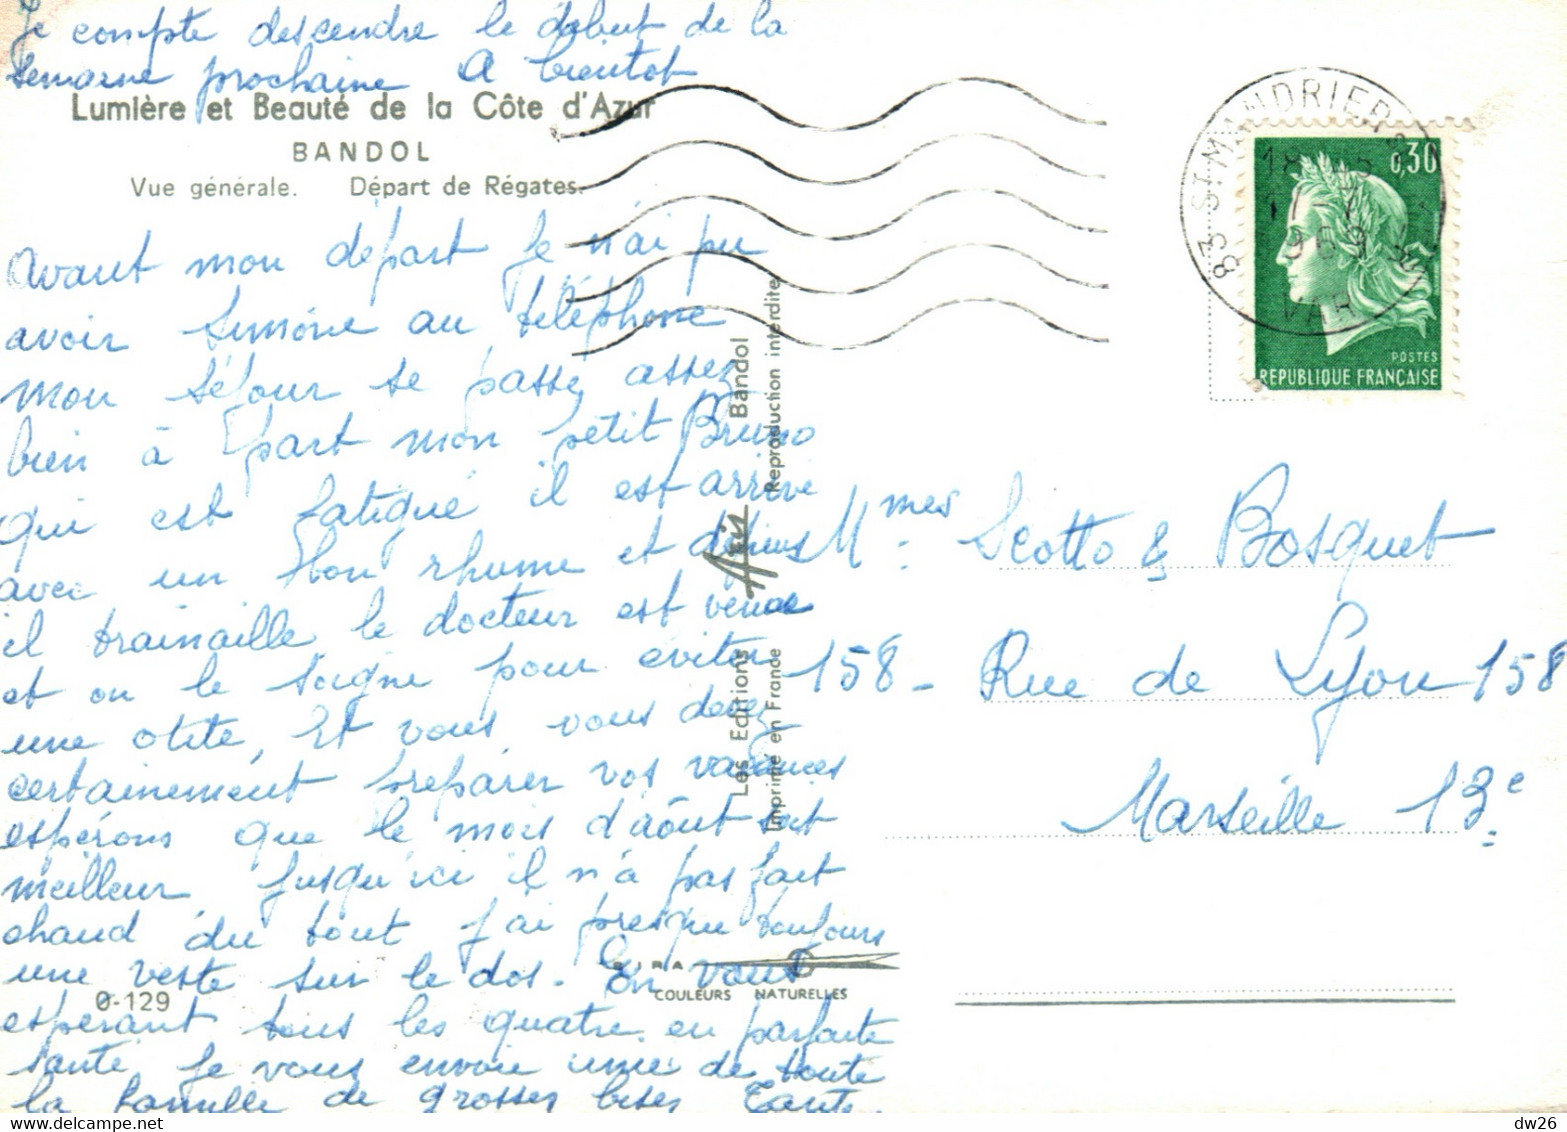 Je compte descendre le début de la
semaine prochaine A bientot
Lumière et Beauté de la Côte d'Azur
BANDOL
Vue générale. Départ de Régates.
Avant mon départ je n'ai pu
avoir Simone au téléphone
mon séjour se passe assez
bien à part mon petit Bruno
qui est fatigué il est arrivé
avec un bon rhume et depuis
il trainaille le docteur est venue
et on le soigne pour éviter
une otite, Et vous vous devez
certainement préparer vos vacances
espérons que le mois d'aôut soit
meilleur jusqu'ici il n'a pas fait
chaud du tout j'ai presque toujours
une veste sur le dos. En vous
espérant tous les quatre en parfaite
santé je vous envoie ainsi de toute
la famille de grosses bises Tante
0-129
COULEURS NATURELLES
Les Editions Aris Bandol
Imprimé en France Reproduction interdite
83 ST MANDRIER S
18
17-7
1969
VAR
0,30
POSTES
REPUBLIQUE FRANÇAISE
Mmes Scotto & Bosquet
158 - Rue de Lyon 158
Marseille 13e
dw26